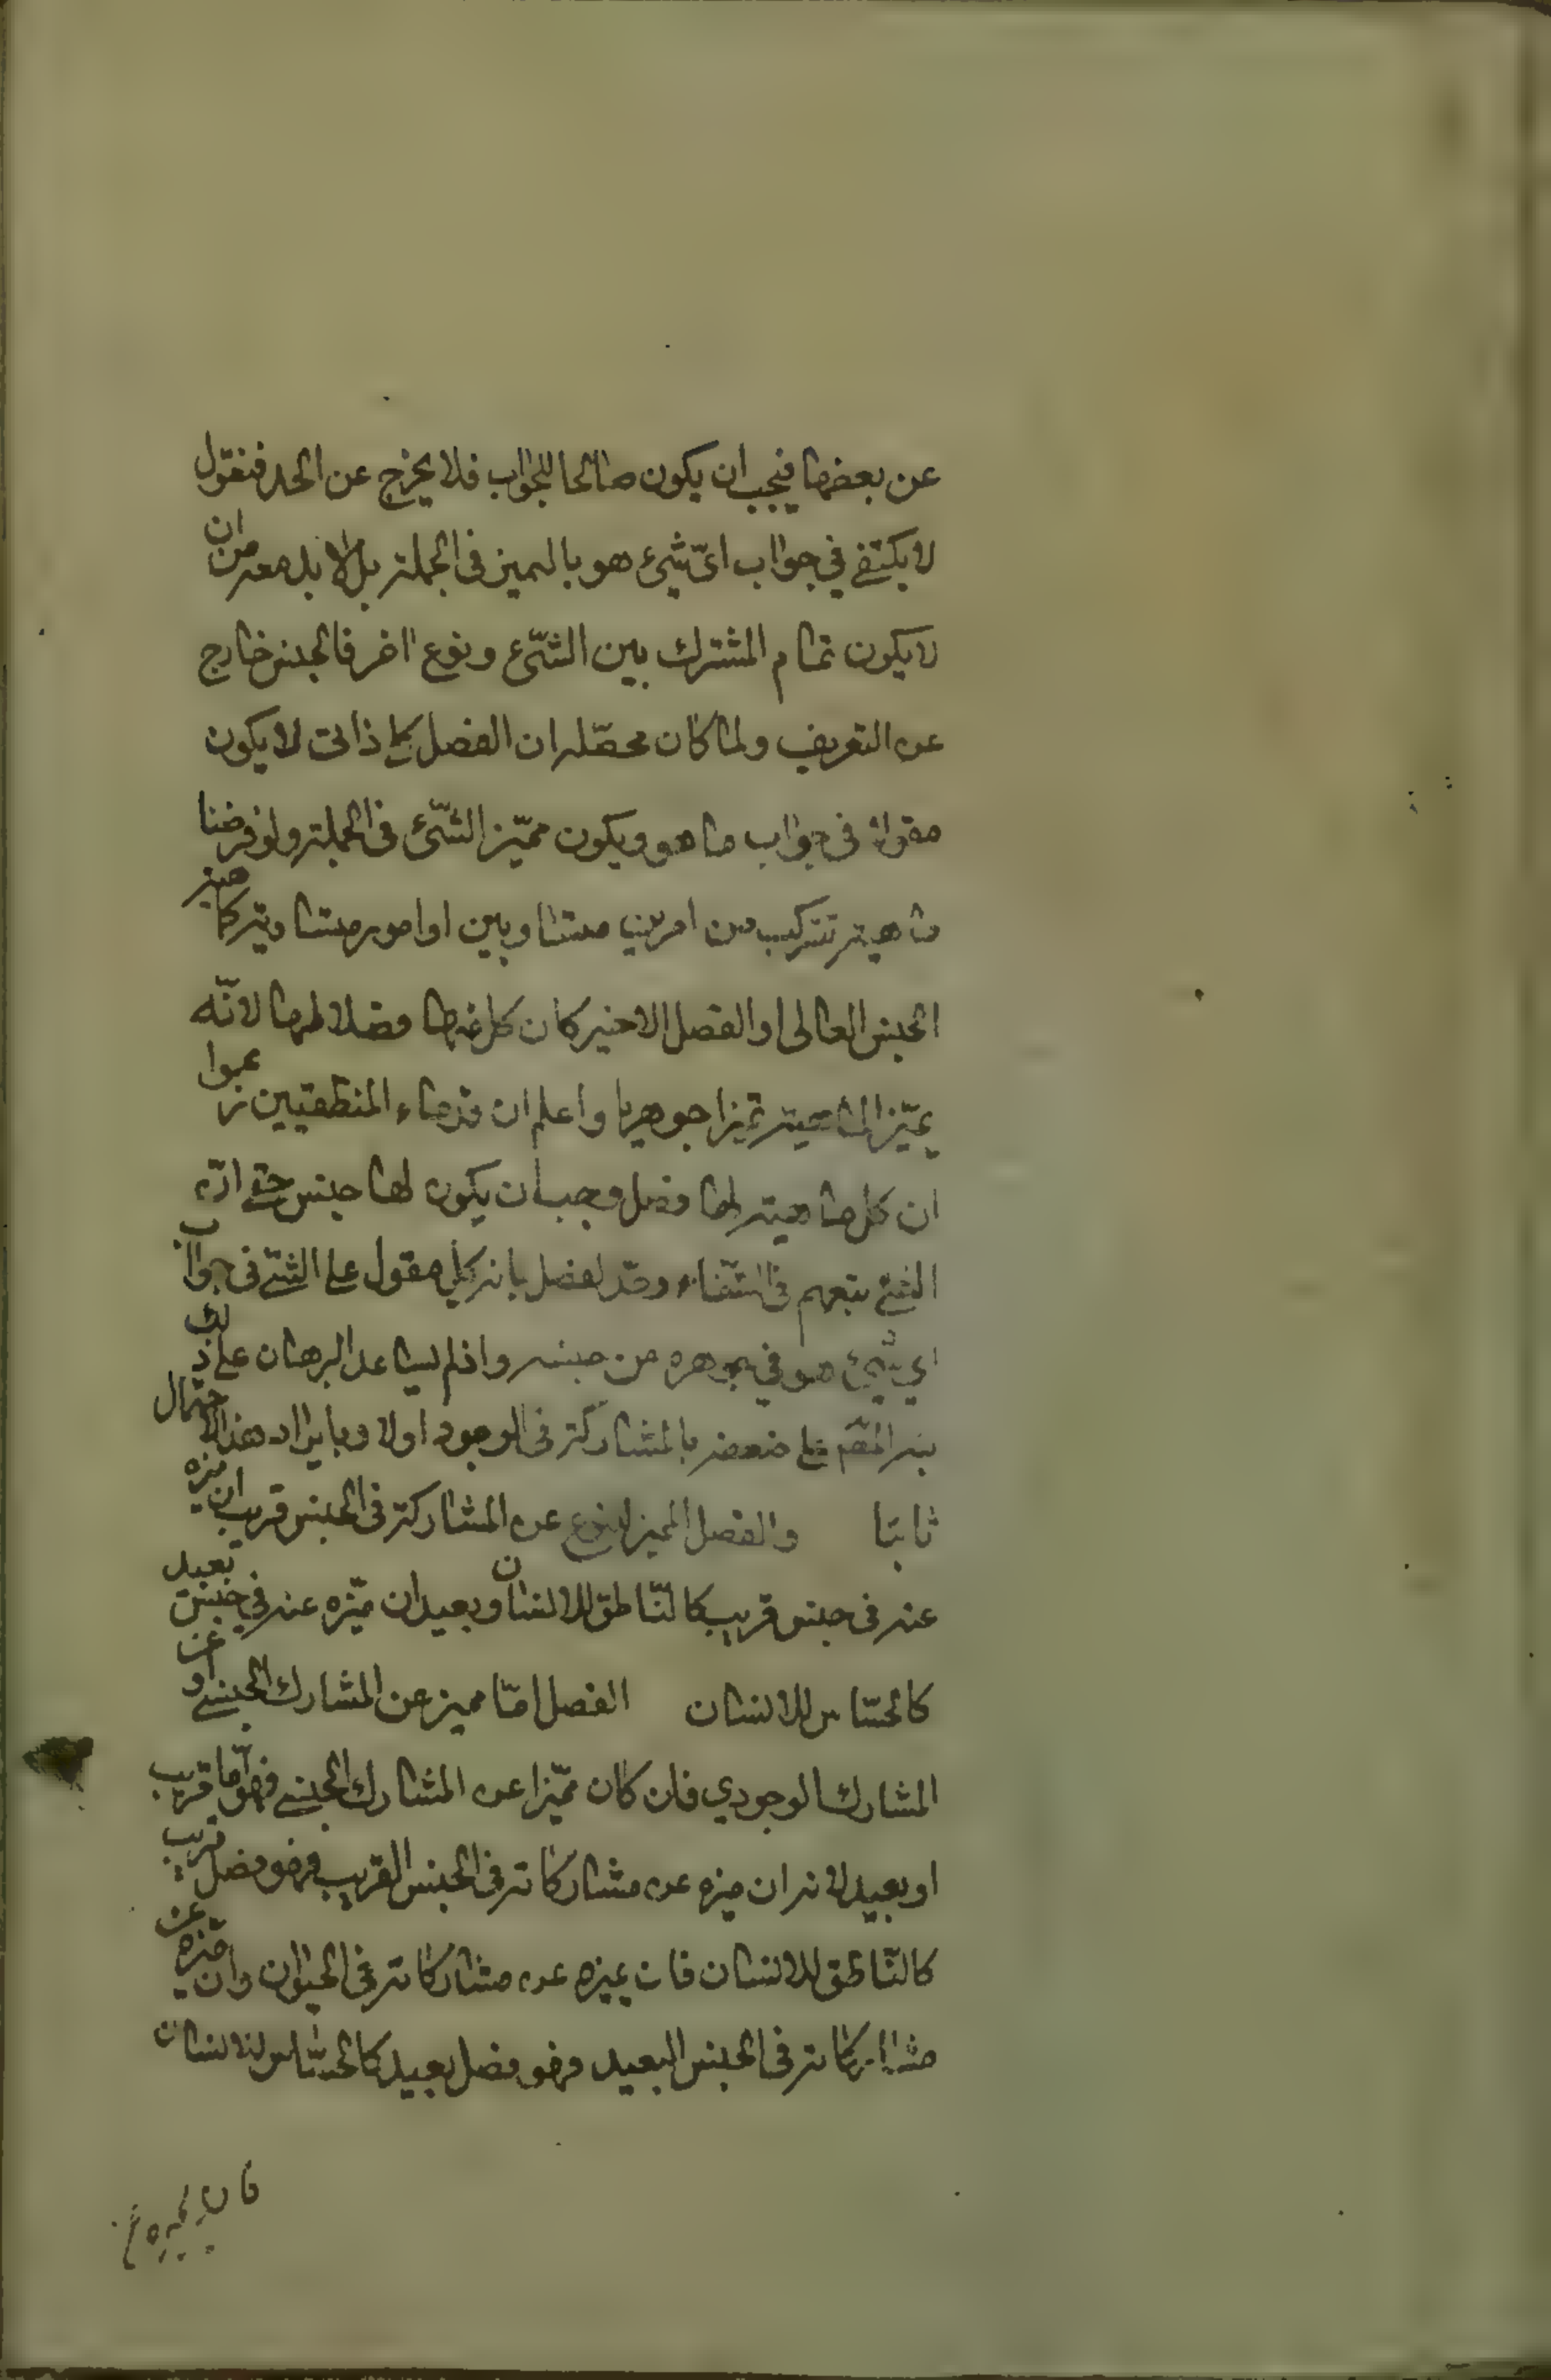 عن بعضها فيجب ان يكون صالحا للجواب فلا يخرج عن الحد فنقول
لا يكتفي في جواب اىّ شئ هو بالمميز فى الجملة بل لا بد معه من ان
لا يكون تمام المشترك بين الشّئ ونوع اخر فالجنس خارج
عن التعريف ولما كان محصّله ان الفصل كلي ذاتى لا يكون
مقولا فى جواب ما هو ويكون مميّز الشّئ فى الجملة ولو فرضنا
ماهية تتركب من امرين متساويين او امور متساوية كماهية
الجنس العالى او الفصل الاخير كان كل منها فصلا لها لانّه
يميّز الماهية تميزا جوهريا واعلم ان قدماء المنطقيين زعموا
ان كل ماهية لها فصل وجب ان يكون لها جنس حتى انّ
الشيخ تبعهم فى الشّفاء وحدّ الفصل بانه كلي مقول على الشئ فى جواب
اي شئ هو في جوهره من جنسه واذا لم يساعد البرهان على ذلك
نبه المصّ على ضعفه بالمشاركة فى الوجود اولا وبايراد هذا الاحتمال
ثانيا والفصل المميز للنوع عن المشاركة فى الجنس قريب ان ميزه
عنه فى جنس قريب كالنّاطق للانسان وبعيد ان ميّزه عنه في جنس بعيد
كالحسّاس للانسان الفصل امّا مميز عن المشارك الجنسي او عن
المشارك الوجودي فان كان مميّزا عن المشارك الجنسي فهو اما قريب
او بعيد لانه ان ميزه عن مشاركاته فى الجنس القريب فهو فصل قريب
كالنّاطق للانسان فانه يميزه عن مشاركاته فى الحيوان وان ميّزه عن
مشاركاته فى الجنس البعيد فهو فصل بعيد كالحسّاس للانسان
فانه يميزه عن